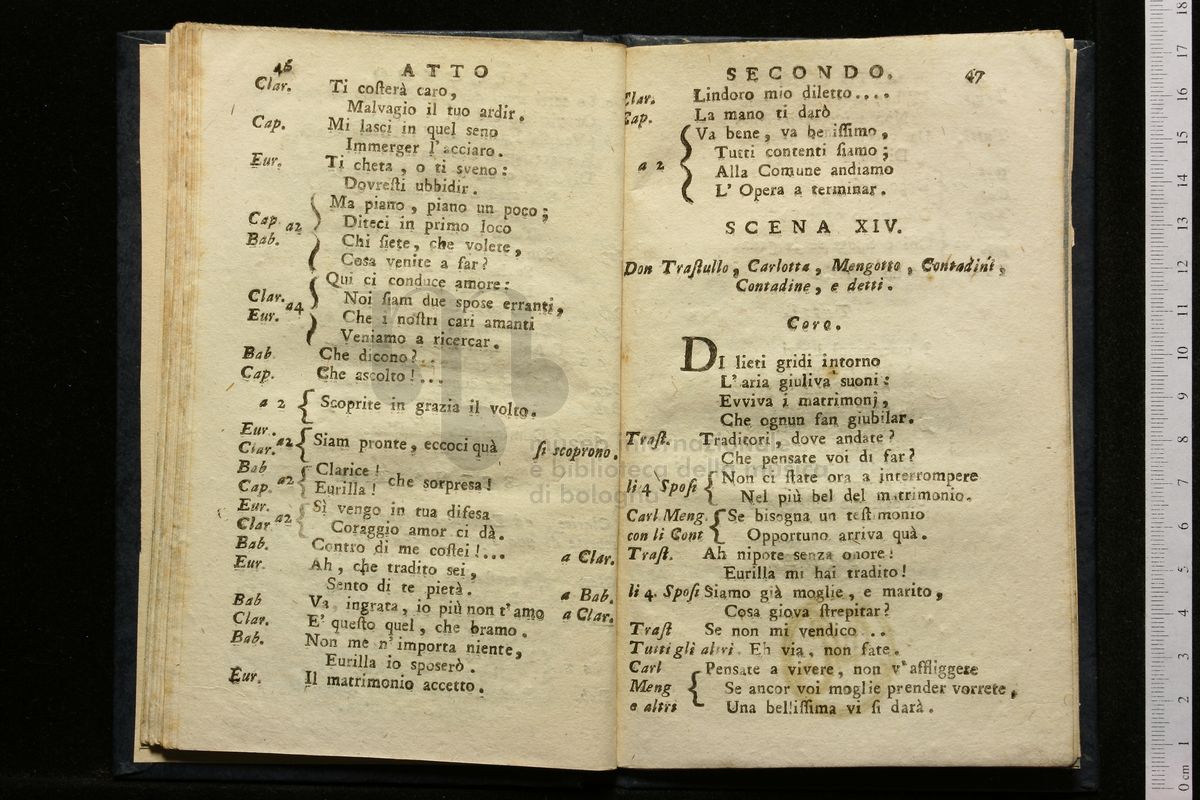 46 ATTO
Clar. Ti costerà caro,
Malvagio il tuo ardir.
Cap. Mi lasci in quel seno
Immerger l'acciaro.
Eur. Ti cheta, o ti sveno:
Dovresti ubbidir.
Ma piano, piano un poco;
Cap a2 Diteci in primo loco
Bab. Chi siete, che volete,
Cosa venite a far?
Qui ci conduce amore:
Clar. a4 Noi siam due spose erranti,
Eur. Che i nostri cari amanti
Veniamo a ricercar.
Bab Che dicono?..
Cap. Che ascolto!...
a 2 Scoprite in grazia il volto.
Eur.
Clar. a2 Siam pronte, eccoci quà si scoprono.
Bab Clarice!
Cap. a2 Eurilla! che sorpresa!
Eur. Sì vengo in tua difesa
Clar a2 Coraggio amor ci dà.
Bab. Contro di me costei!... a Clar.
Eur. Ah, che tradito sei,
Sento di te pietà. a Bab.
Bab Va, ingrata, io più non t'amo a Clar.
Clar. E' questo quel, che bramo.
Bab. Non me n'importa niente,
Eurilla io sposerò.
Eur. Il matrimonio accetto.
SECONDO. 47
Clar. Lindoro mio diletto....
Cap. La mano ti darò
Va bene, va benissimo,
a 2 Tutti contenti siamo;
Alla Comune andiamo
L'Opera a terminar.
SCENA XIV.
Don Trastullo, Carlotta, Mengotto, Contadini,
Contadine, e detti.
Coro.
DI lieti gridi intorno
L'aria giuliva suoni:
Evviva i matrimonj,
Che ognun fan giubilar.
Trast. Traditori, dove andate?
Che pensate voi di far?
li 4 Sposi Non ci state ora a interrompere
Nel più bel del matrimonio.
Carl Meng. Se bisogna un testimonio
con li Cont Opportuno arriva quà.
Trast. Ah nipote senza onore!
Eurilla mi hai tradito!
li 4. Sposi Siamo già moglie, e marito,
Cosa giova strepitar?
Trast Se non mi vendico ..
Tutti gli altri. Eh via, non fate.
Carl Pensate a vivere, non v'affliggete
Meng Se ancor voi moglie prender vorrete,
e altri Una bellissima vi si darà.
museo internazionale
e biblioteca della musica
di bologna
18
17
16
15
14
13
12
11
10
9
8
7
6
5
4
3
2
1
0 cm